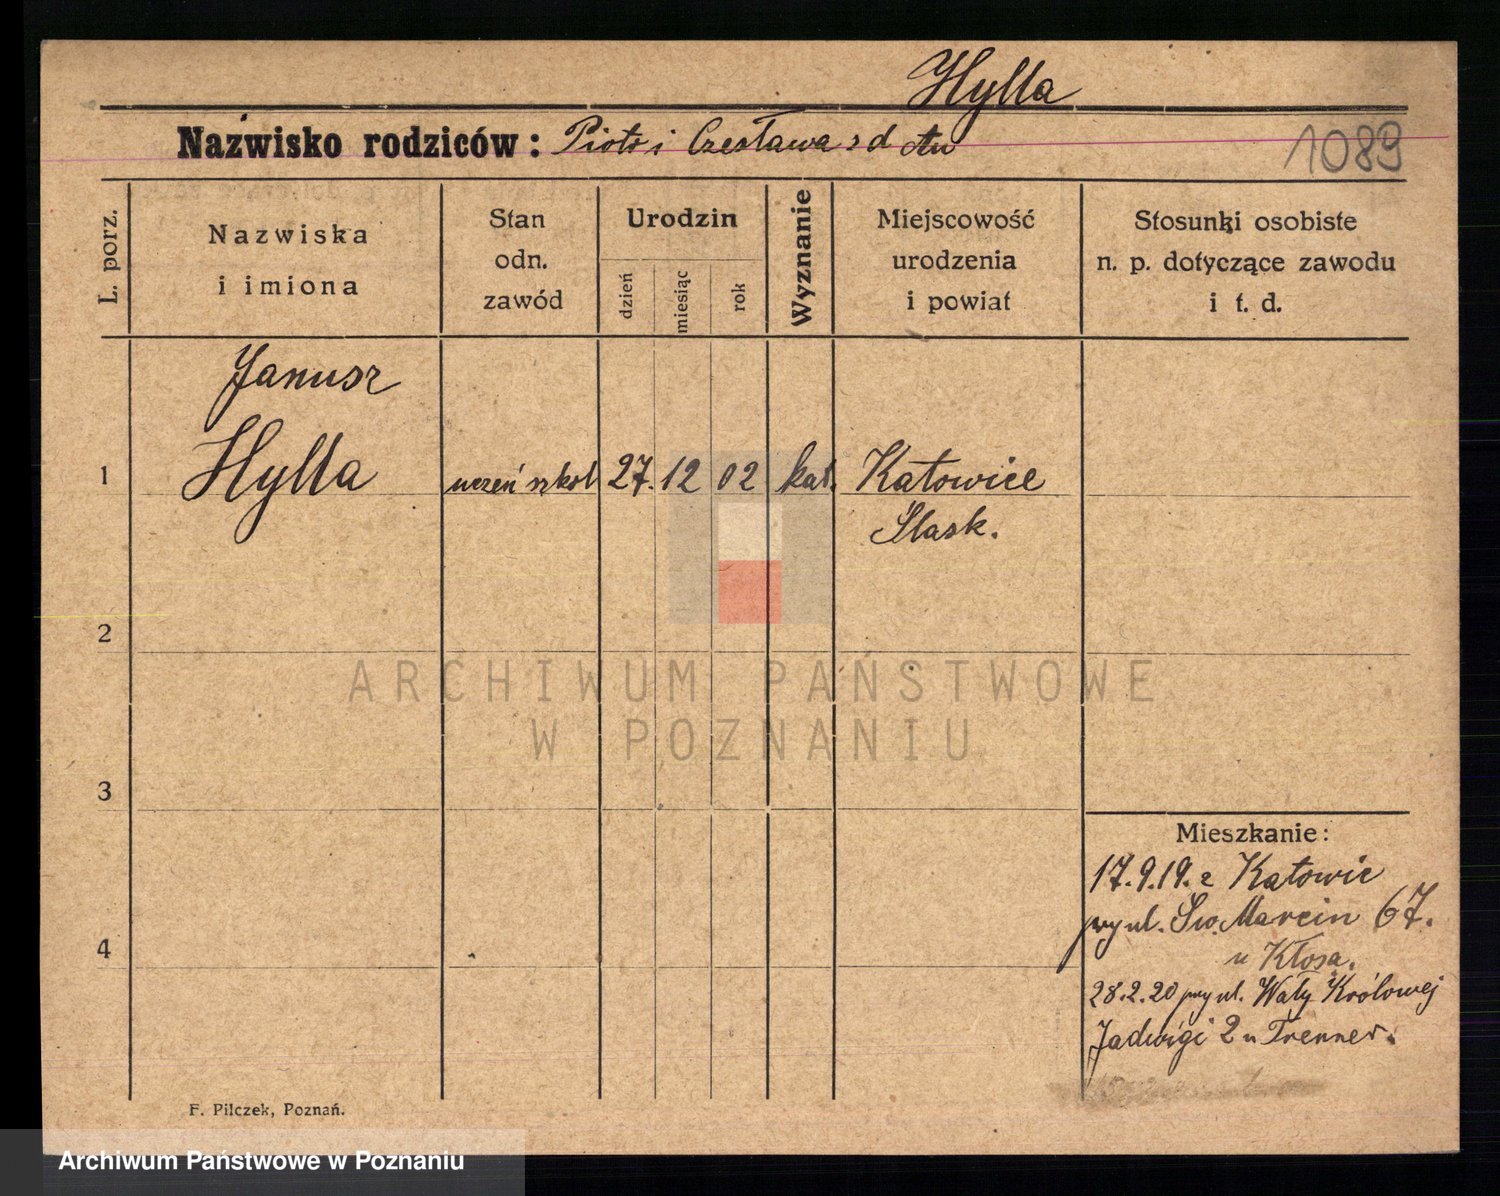 Hylla
Nazwisko rodziców: Piotr i Czesława z d
1089
L. porz.
Nazwiska
i imiona
Stan
odn.
zawód
Urodzin
dzień
miesiąc
rok
Wyznanie
Miejscowość
urodzenia
i powiat
Stosunki osobiste
n. p. dotyczące zawodu
i t. d.
Janusz
1 Hylla uczeń szkol 27. 12 02 kat. Katowice
Śląsk.
2
3
4
Mieszkanie:
17.9.19. z Katowic
przy ul. Św. Marcin 67.
u Kłosa.
28.2.20 przy ul. Wały Królowej
Jadwigi 2 u Trenner.
F. Pilczek, Poznań.
ARCHIWUM PAŃSTWOWE
W POZNANIU
Archiwum Państwowe w Poznaniu